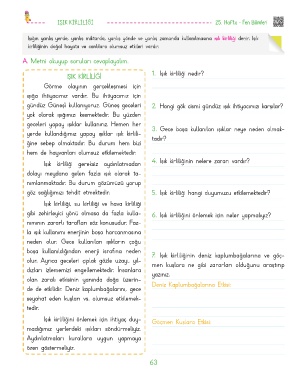 IŞIK KİRLİLİĞİ
25. Hafta - Fen Bilimleri
Işığın yanlış yerde, yanlış miktarda, yanlış yönde ve yanlış zamanda kullanılmasına ışık kirliliği denir. Işık
kirliliğinin doğal hayata ve canlılara olumsuz etkileri vardır.
A. Metni okuyup soruları cevaplayalım.
IŞIK KİRLİLİĞİ
Görme olayının gerçekleşmesi için
ışığa ihtiyacımız vardır. Bu ihtiyacımız için
gündüz Güneşi kullanıyoruz. Güneş geceleri
yok olarak ışığımızı kesmektedir. Bu yüzden
geceleri yapay ışıklar kullanırız. Hemen her
yerde kullandığımız yapay ışıklar ışık kirlili-
ğine sebep olmaktadır. Bu durum hem bizi
hem de hayvanları olumsuz etkilemektedir.
Işık kirliliği gereksiz aydınlatmadan
dolayı meydana gelen fazla ışık olarak ta-
nımlanmaktadır. Bu durum gözümüzü yorup
göz sağlığımızı tehdit etmektedir.
Işık kirliliği, su kirliliği ve hava kirliliği
gibi zehirleyici yönü olmasa da fazla kulla-
nımının zararlı tarafları söz konusudur. Faz-
la ışık kullanımı enerjinin boşa harcanmasına
neden olur. Gece kullanılan ışıkların çoğu
boşa kullanıldığından enerji israfına neden
olur. Ayrıca geceleri ışıklık gözde uzay, yıl-
dızları izlememizi engellemektedir. İnsanlara
olan zararlı etkisinin yanında doğa üzerin-
de de etkilidir. Deniz kaplumbağalarını, gece
seyahat eden kuşları vs. olumsuz etkilemek-
tedir.
Işık kirliliğini önlemek için ihtiyaç duy-
madığımız yerlerdeki ışıkları söndürmeliyiz.
Aydınlatmaları kurallara uygun yapmaya
özen göstermeliyiz.
1. Işık kirliliği nedir?
2. Hangi gök cismi gündüz ışık ihtiyacımızı karşılar?
3. Gece boşa kullanılan ışıklar neye neden olmak-
tadır?
4. Işık kirliliğinin nelere zararı vardır?
5. Işık kirliliği hangi duyumuzu etkilemektedir?
6. Işık kirliliğini önlemek için neler yapmalıyız?
7. Işık kirliliğinin deniz kaplumbağalarına ve göç-
men kuşlara ne gibi zararları olduğunu araştırıp
yazınız.
Deniz Kaplumbağalarına Etkisi:
Göçmen Kuşlara Etkisi:
63